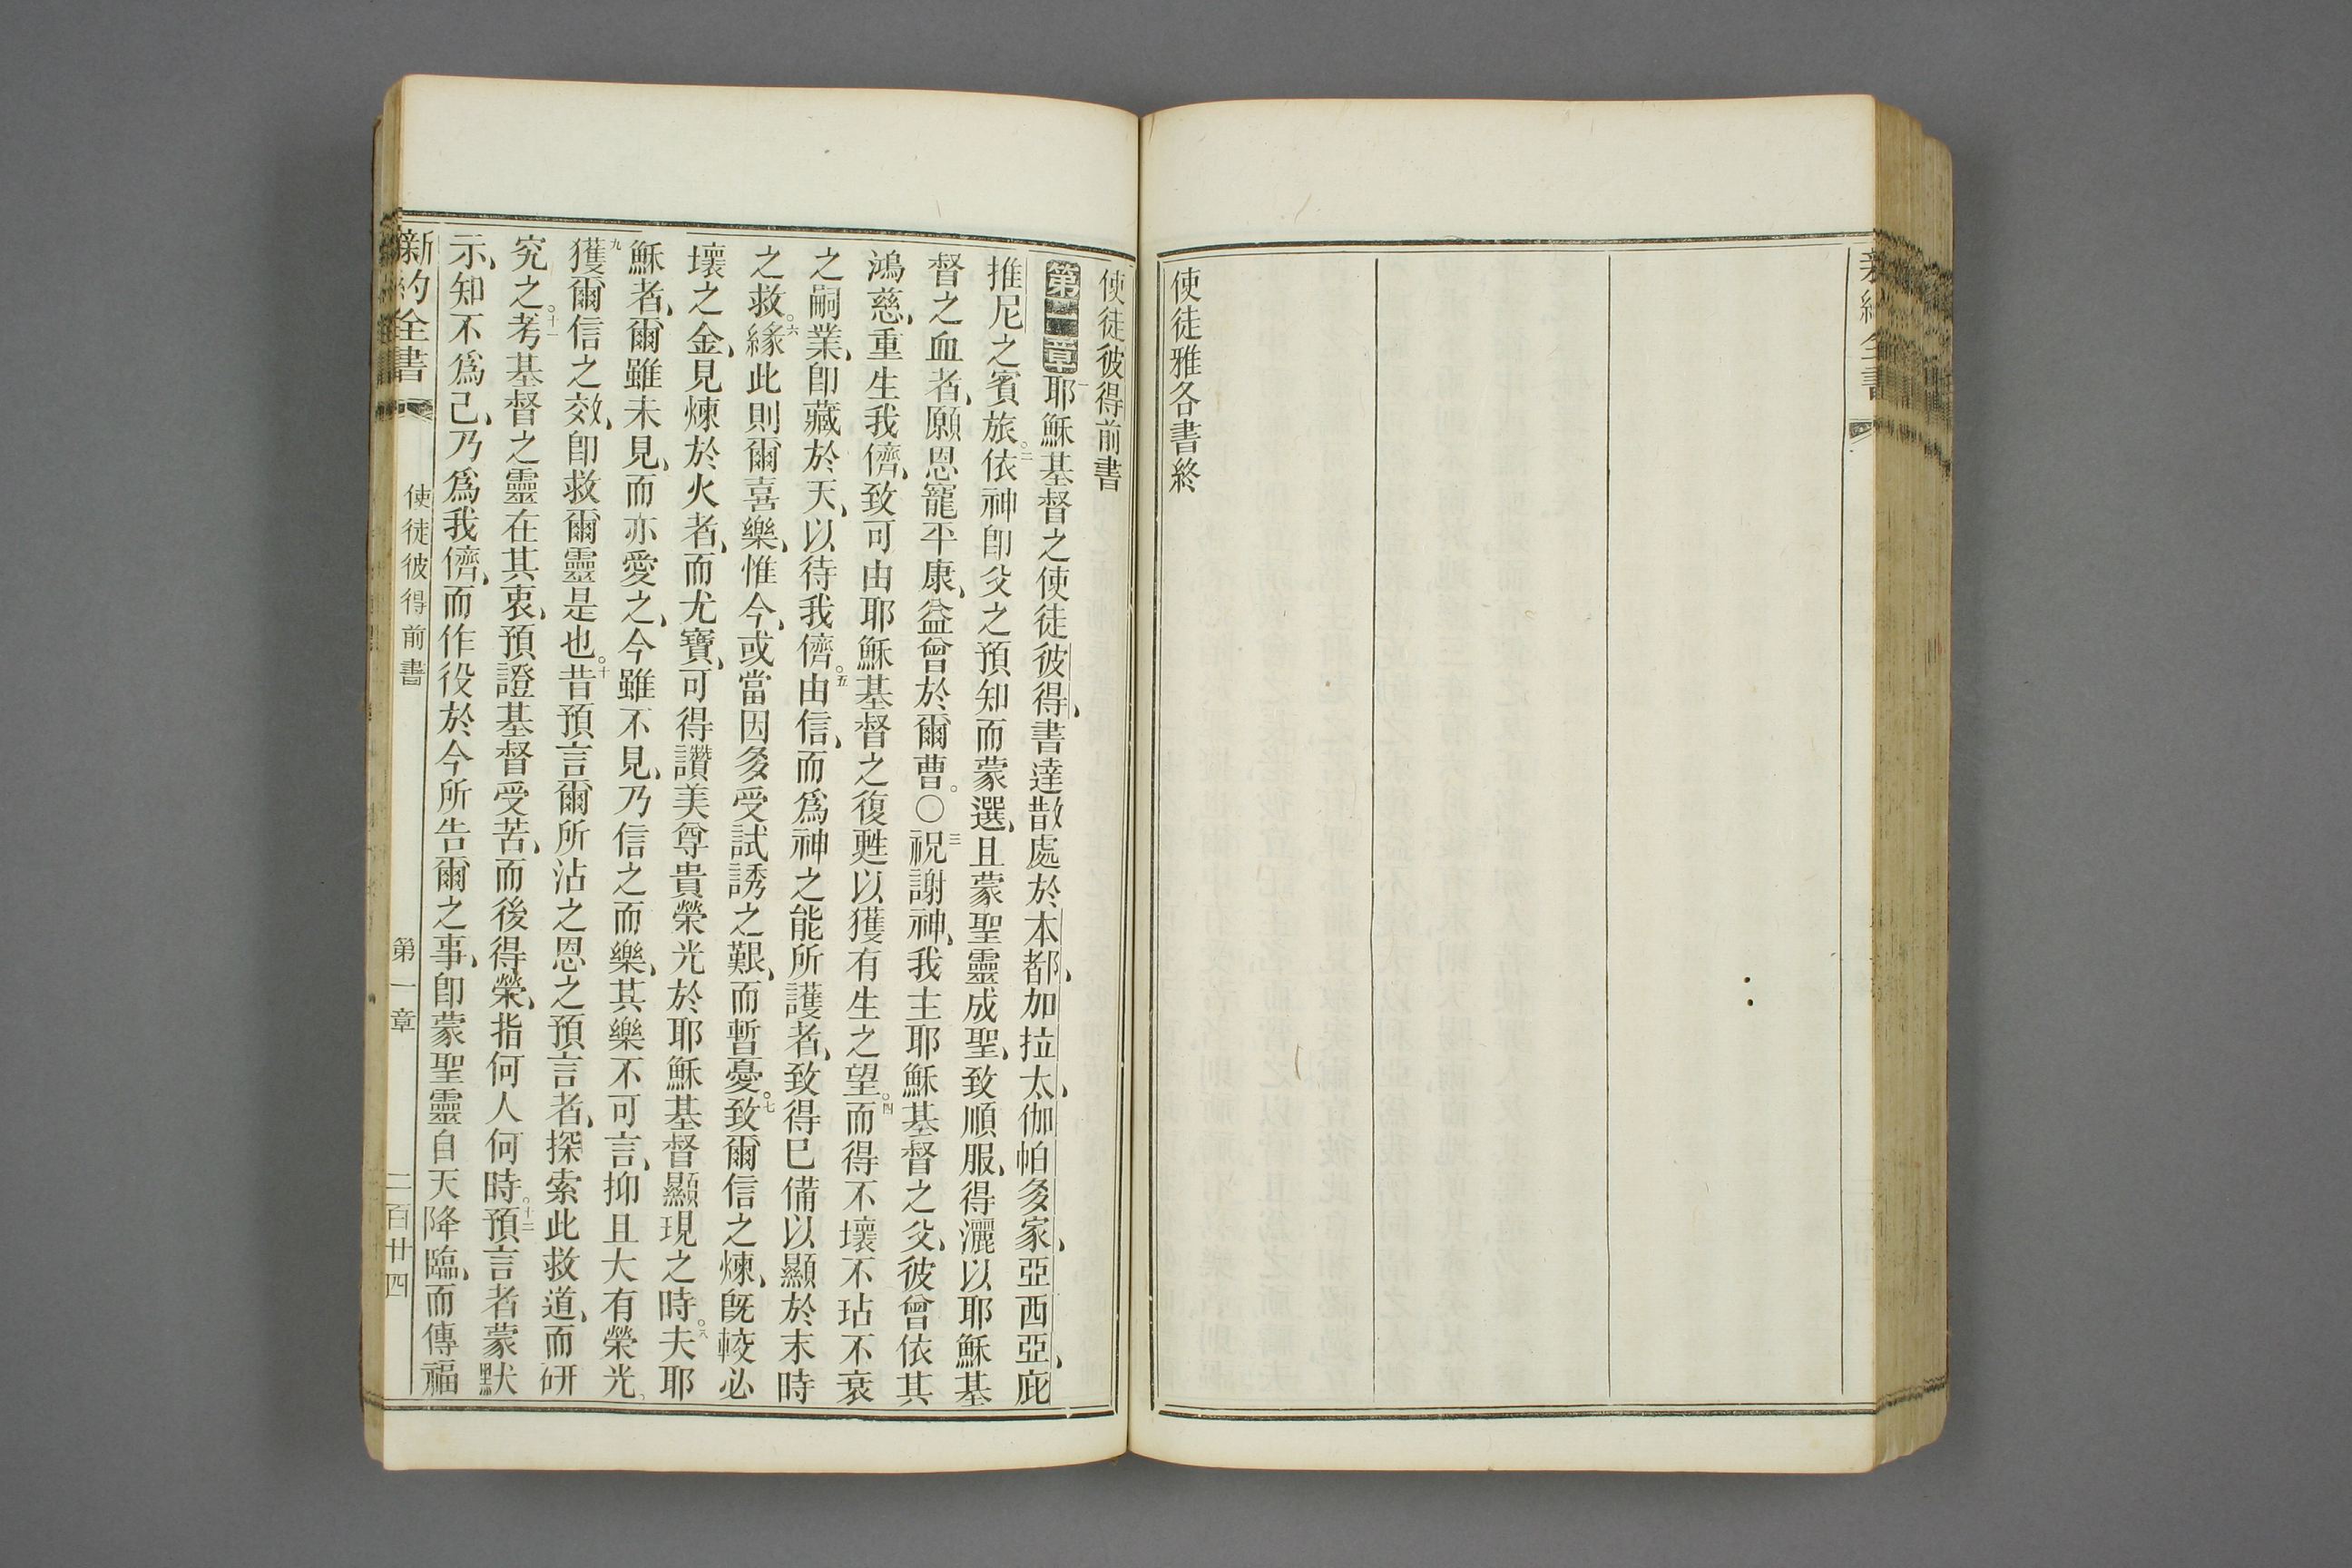 新約全書
使徒雅各書終
使徒彼得前書
第一章 一耶穌基督之使徒彼得、書達散處於本都、加拉太、伽帕多家、亞西亞、庇
推尼之賓旅。二依神卽父之預知而蒙選、且蒙聖靈成聖、致順服、得灑以耶穌基
督之血者、願恩寵平康、益曾於爾曹。○三祝謝神、我主耶穌基督之父、彼曾依其
鴻慈、重生我儕、致可由耶穌基督之復甦以獲有生之望。四而得不壞不玷不衰
之嗣業、卽藏於天、以待我儕。五由信、而爲神之能所護者、致得已備以顯於末時
之救。六緣此則爾喜樂、惟今、或當因多受試誘之艱、而暫憂。七致爾信之煉、旣較必
壞之金、見煉於火者、而尤寶、可得讚美尊貴榮光於耶穌基督顯現之時。八夫耶
穌者、爾雖未見、而亦愛之、今雖不見、乃信之而樂、其樂不可言、抑且大有榮光、
九獲爾信之效、卽救爾靈是也。十昔預言爾所沾之恩之預言者、探索此救道、而研
究之。十一考基督之靈在其衷、預證基督受苦、而後得榮、指何人何時。十二預言者蒙默
示、知不爲己、乃爲我儕、而作役於今所告爾之事、卽蒙聖靈自天降臨、而傳福
新約全書 使徒彼得前書 第一章 二百廿四